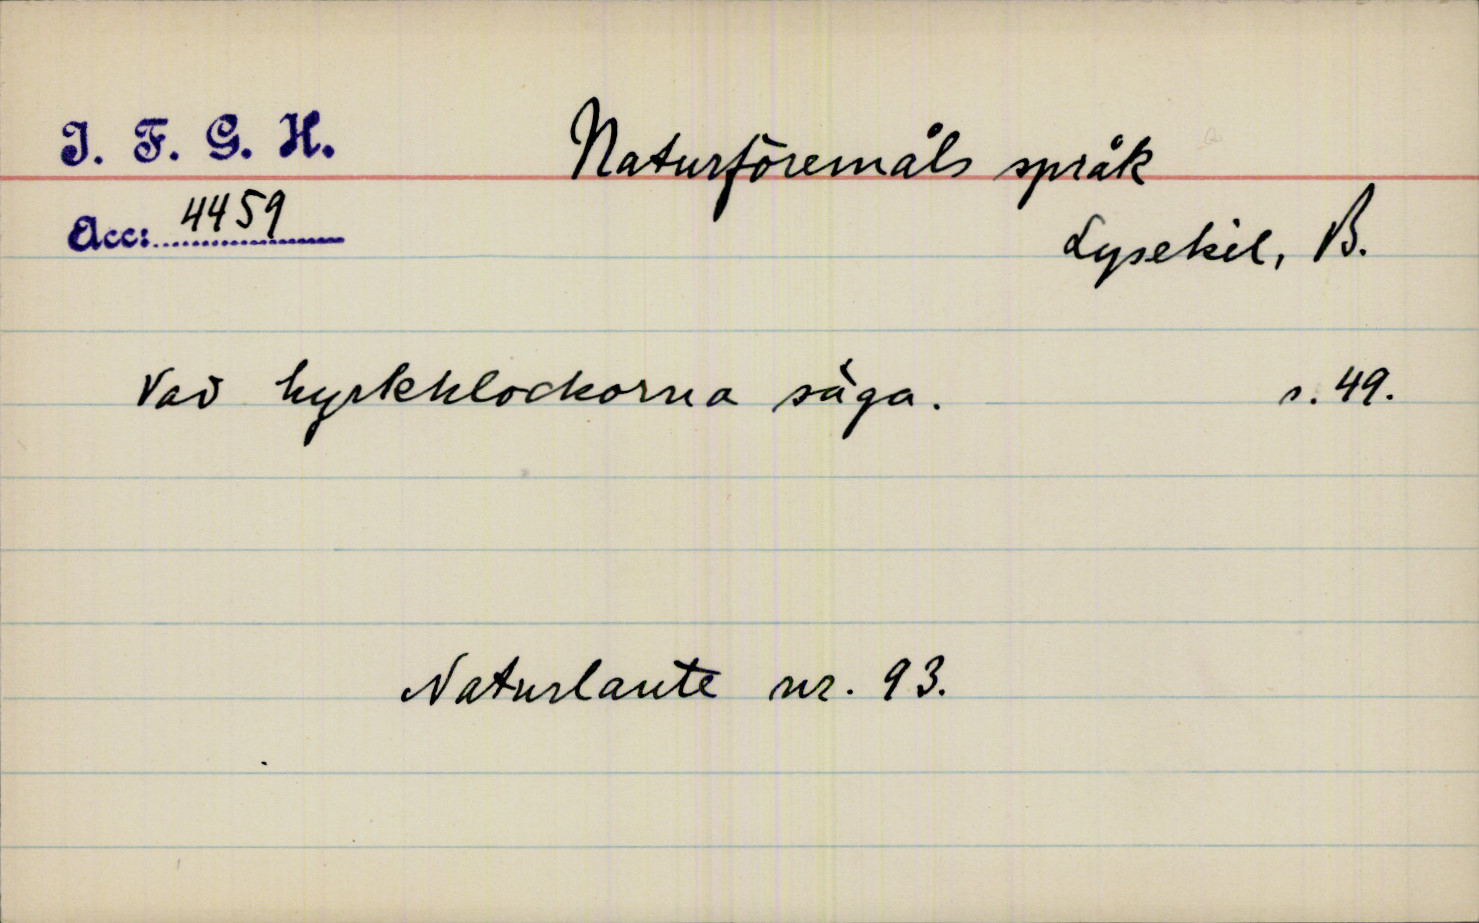 I. F. G. H.
Naturföremåls språk
Acc: 4459
Lysekil, B.
Vad kyrkklockorna säga. s. 49.
Naturlaute nr. 93.